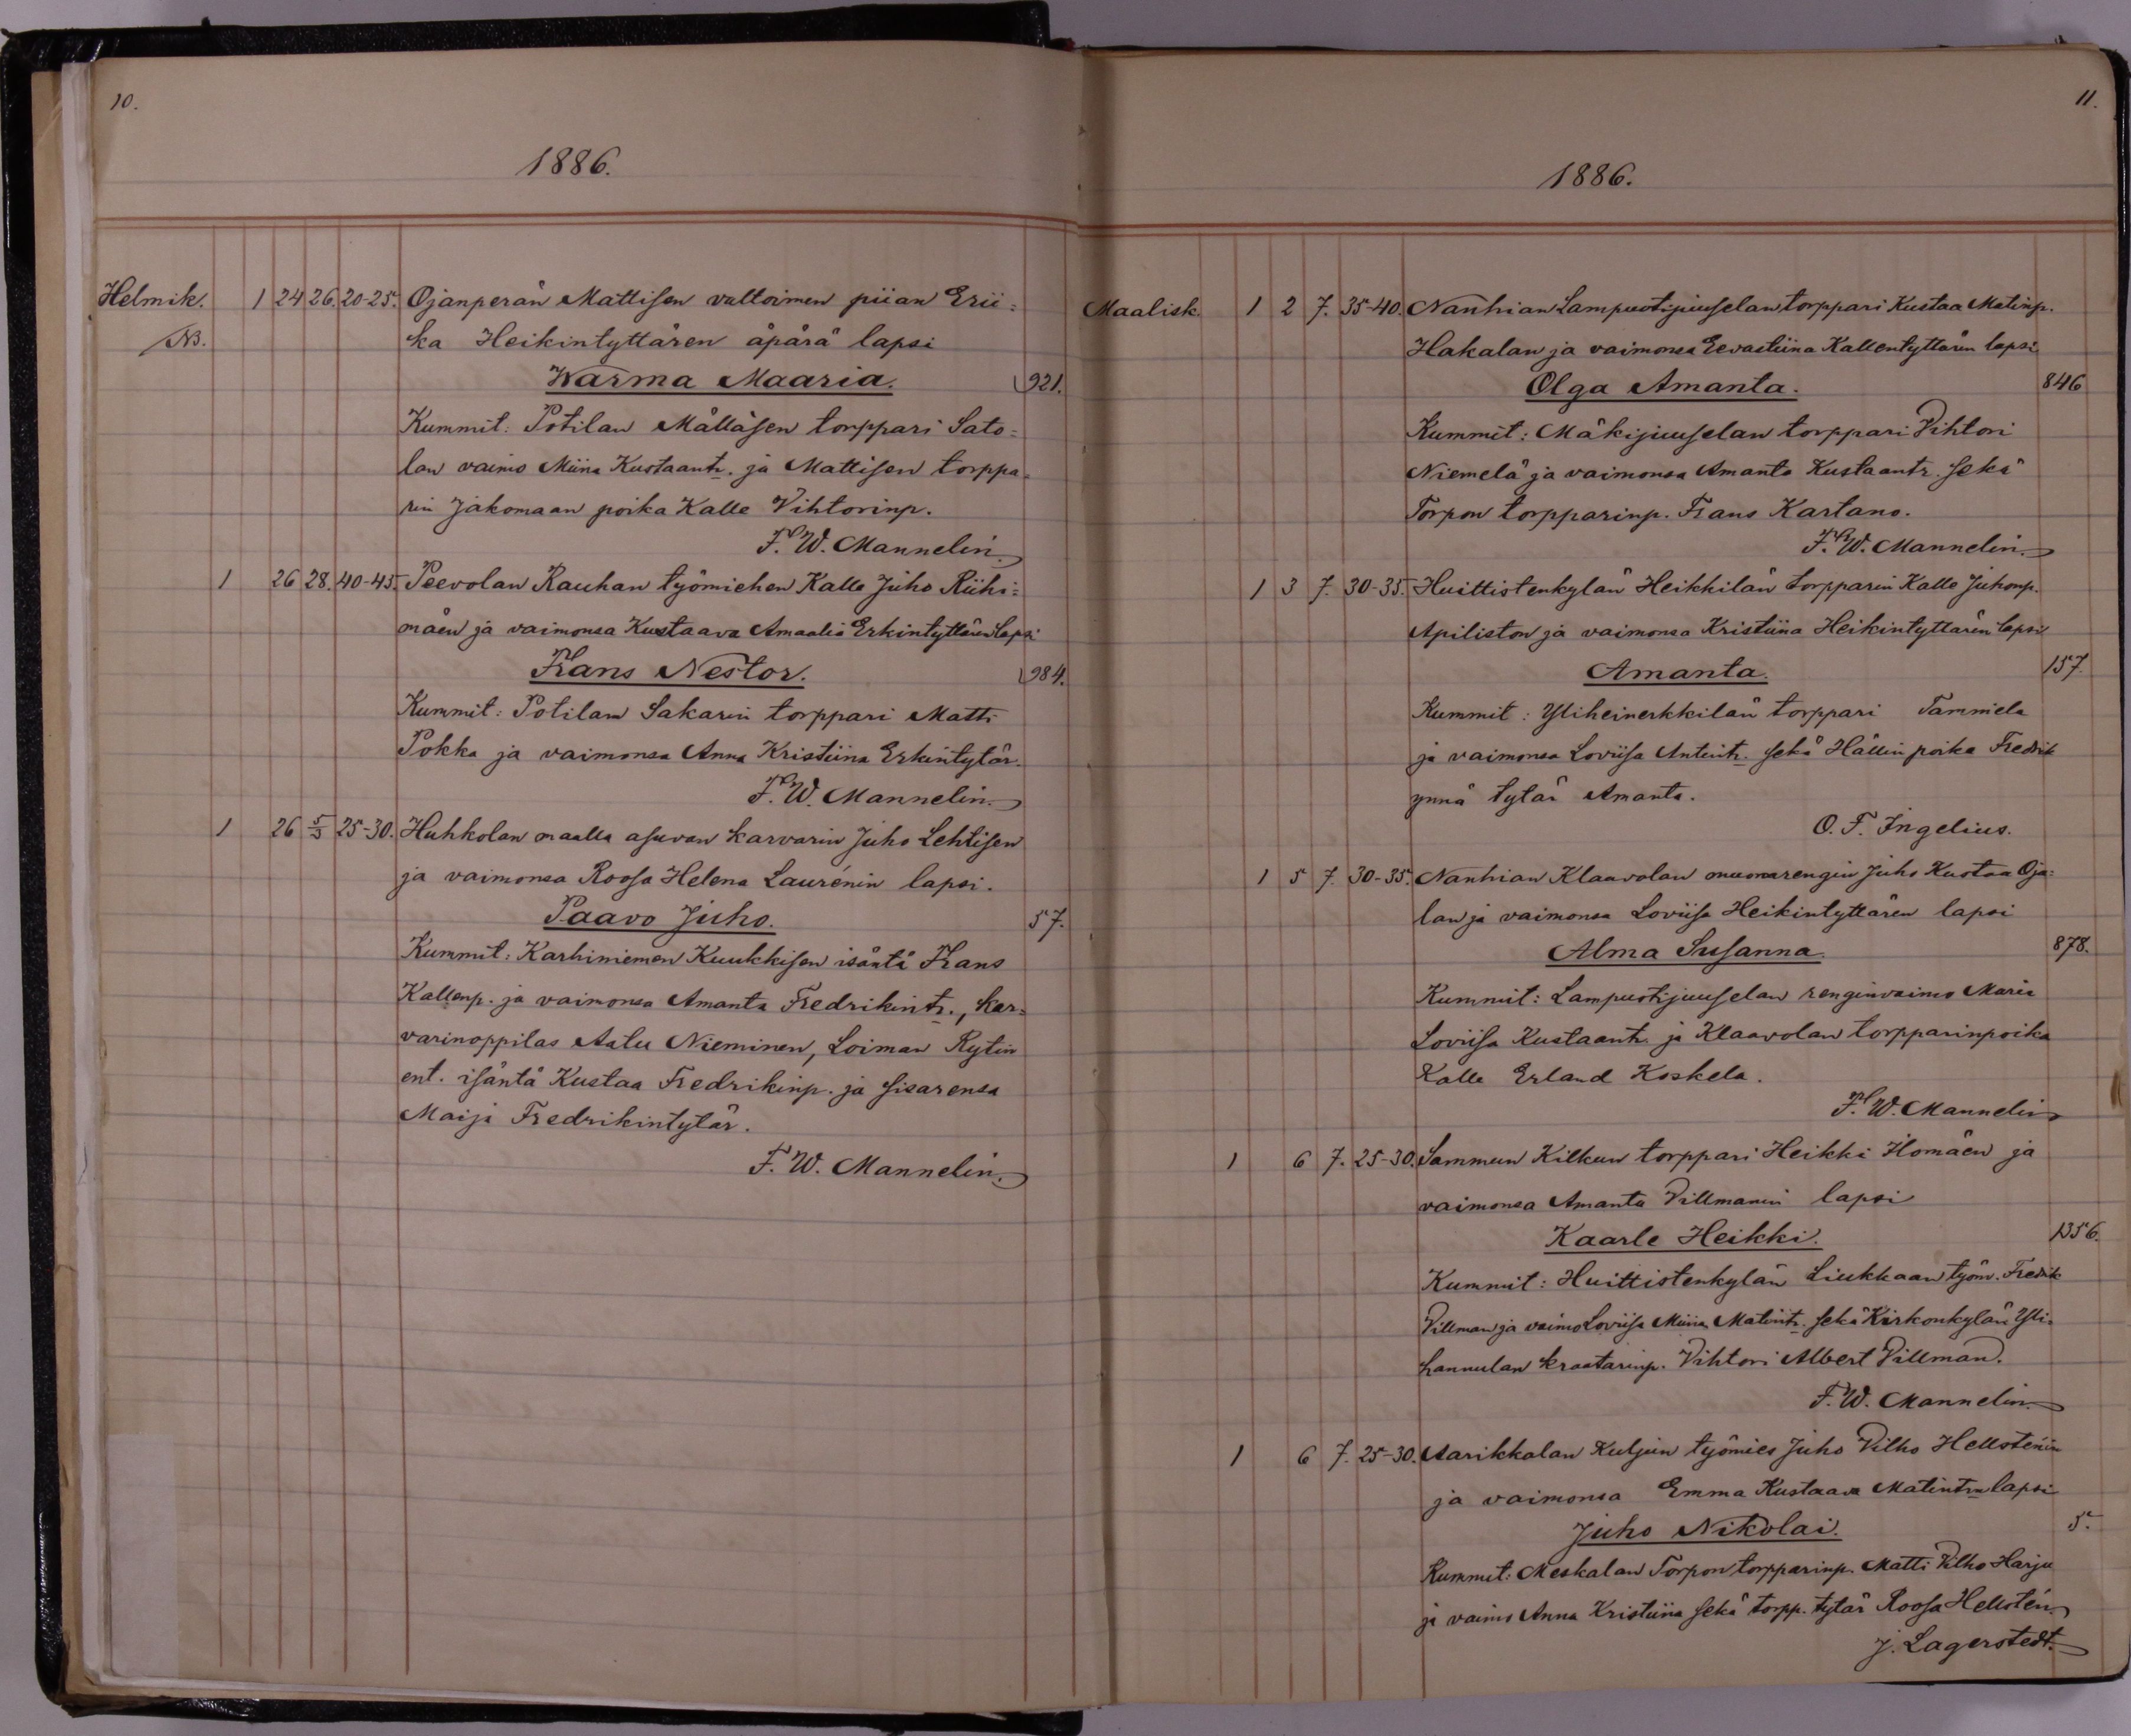 10.
1886.
Helmik. 1 24 26. 20-25. Ojanperän Mattisen valtoimen piian Erii=
NB. ka Heikintyttären äpärä lapsi
Warma Maaria. 921.
Kummit: Potilan Mällåsen torppari Sato=
lan vaimo Miina Kustaantr. ja Mattisen torppa=
rin Jakomaan poika Kalle Vihtorinp.
F. W. Mannelin.
1 26 28. 40-45. Peevolan Rauhan työmiehen Kalle Juho Riihi=
mäen ja vaimonsa Kustaava Amaalia Erkintyttären lapsi
Frans Nestor. 984.
Kummit: Potilan Sakarin torppari Matti
Pokka ja vaimonsa Anna Kristiina Erkintytär.
F. W. Mannelin.
1 26 5/3 25-30. Huhkolan maalla asuvan karvarin Juho Lehtisen
ja vaimonsa Roosa Helena Laurénin lapsi.
Paavo Juho. 57.
Kummit: Karhiniemen Kuukkisen isäntä Frans
Kallenp. ja vaimonsa Amanta Fredrikintr., kar=
varinoppilas Aatu Nieminen, Loiman Rytin
ent. isäntä Kustaa Fredrikinp. ja sisarensa
Maija Fredrikintytär.
F. W. Mannelin.
11.
1886.
Maalisk. 1 2 7. 35-40. Nanhian Lampuotijuuselan torppari Kustaa Matinp.
Hakalan ja vaimonsa Eevastiina Kallentyttären lapsi
Olga Amanta. 846
Kummit: Mäkijuuselan torppari Vihtori
Niemelä ja vaimonsa Amanta Kustaantr. sekä
Torpon torpparinp. Frans Kartano.
F. W. Mannelin.
1 3 7. 30-35. Huittistenkylän Heikkilän torpparin Kalle Juhonp.
Apiliston ja vaimonsa Kristiina Heikintyttären lapsi
Amanta. 157.
Kummit: Yliheinerkkilän torppari Tammela
ja vaimonsa Loviisa Antintr. sekä Hällin poika Fredrik
ynnä tytär Amanta.
O. F. Ingelius.
1 5 7. 30-35. Nanhian Klaavolan muonarengin Juho Kustaa Oja=
lan ja vaimonsa Loviisa Heikintyttären lapsi
Alma Susanna. 878.
Kummit: Lampuotijuuselan renginvaimo Maria
Loviisa Kustaantr. ja Klaavolan torpparinpoika
Kalle Erland Koskela.
F. W. Mannelin
1 6 7. 25-30. Sammun Kilkun torppari Heikki Ilomäen ja
vaimonsa Amanta Villmanin lapsi
Kaarle Heikki. 1356.
Kummit: Huittistenkylän Liukkaan työm. Fredrik
Villman ja vaimo Loviisa Miina Matintr. sekä Kirkonkylän Yli=
hannulan kraatarinp. Vihtori Albert Villman.
F. W. Mannelin.
1 6 7. 25-30. Aarikkalan Kuljun työmies Juho Vilho Hellsténin
ja vaimonsa Emma Kustaava Matintrn lapsi
Juho Nikolai. 5.
Kummit: Meskalan Torpon torpparinp. Matti Vilho Harju
ja vaimo Anna Kristiina sekä torpp. tytär Roosa Hellstén.
J. Lagerstedt.